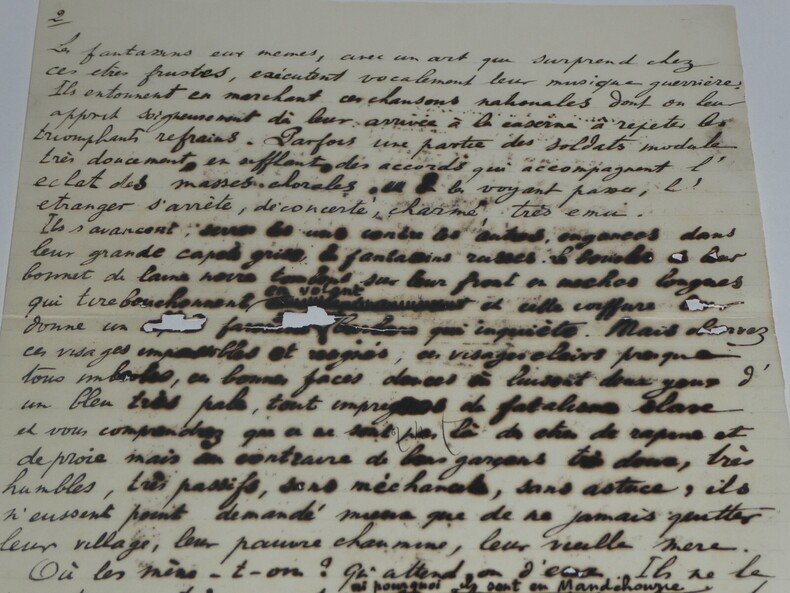 2
Les fantassins eux memes, avec un art qui surprend chez
ces etres frustes, exécutent vocalement leur musique guerrière.
Ils entonnent en marchant ces chansons nationales dont on leur
apprit soigneusement dès leur arrivée à la caserne à repeter les
triomphants refrains. Parfois une partie des soldats module
très doucement, en sifflant, des accords qui accompagnent l'
eclat des masses chorales. les voyant passer, l'
etranger s'arrête, déconcerté, charmé, très emu.
Ils s'avancent, serrés les uns contre les autres, engoncés dans
leur grande capote grise, fantassins russes.
bonnet de laine noire tombe sur leur front en meches longues
en volant
qui tirebouchonnent et cette coiffure
donne un qui inquiète. Mais observez
ces visages impassibles et resignés, ces visages clairs presque
tous imberbes, ces bonnes faces douces où luisent deux yeux d'
un bleu très pale, tout impregnés de fatalisme slave
et vous comprendrez que ce ne sont pas là des etres de rapine et
de proie mais au contraire de bons garçons très doux, très
humbles, très passifs, sans méchanceté, sans astuce, ils
n'eussent point demandé mieux que de ne jamais quitter
leur village, leur pauvre chaumine, leur vieille mere.
Où les mène-t-on? Qui attend on d'eux Ils ne le
ni pourquoi ils vont en Mandchourie